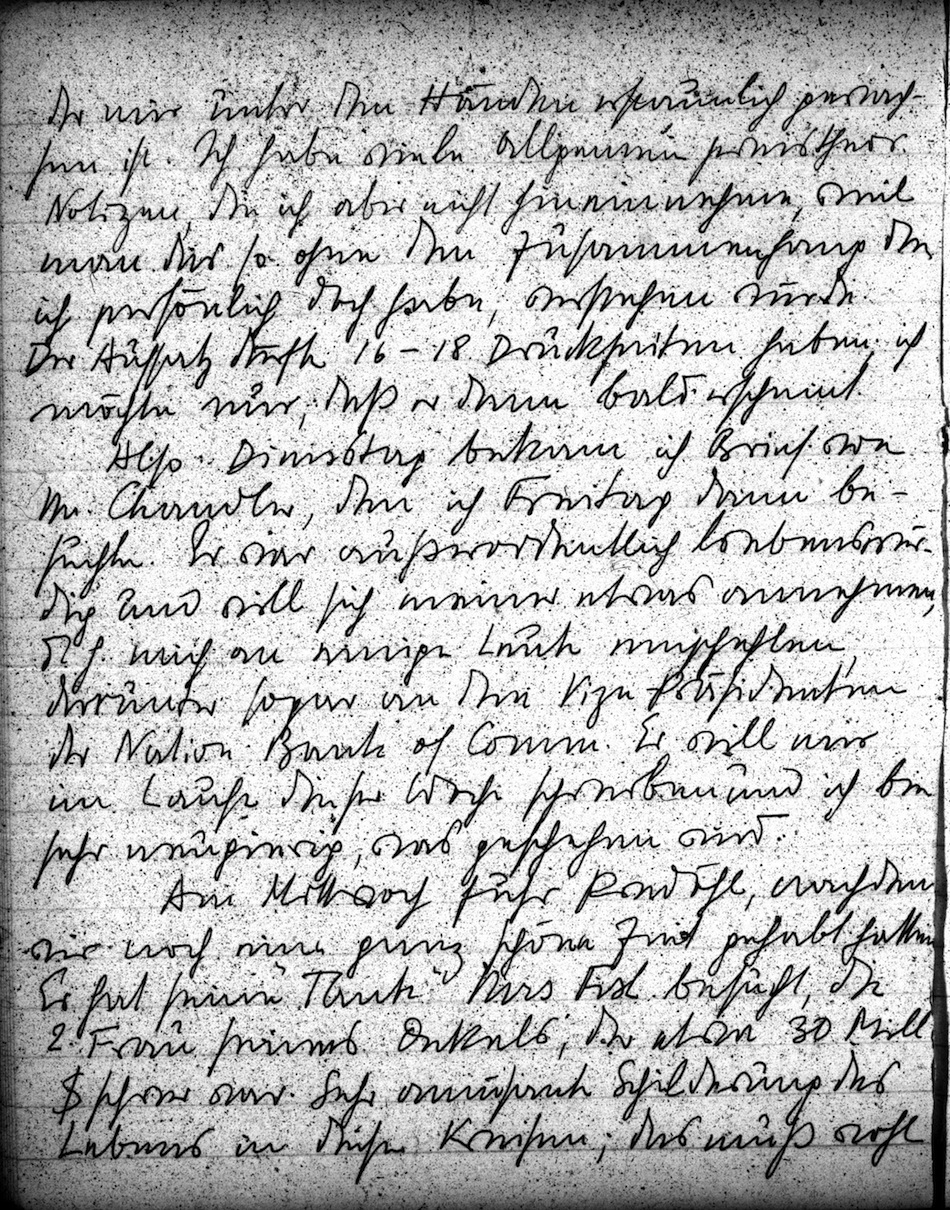 der mir unter den Händen erstaunlich gewach-
sen ist. Ich habe viele allgemein
Notizen, die ich aber nicht hineinnehme, weil
man das so ohne den Zusammenhang den
ich persönlich doch habe, verstehen würde.
Der Aufsatz dürfte 16 – 18 Druckseiten haben, ich
möchte nur, daß er dann bald erscheint.
Also. Dienstag bekam ich Brief von
Mr. Chandler, den ich Freitag dann be-
suchte. Er war außerordentlich liebenswür-
dig und will sich meiner etwas annehmen,
d. h. mich an einige Leute empfehlen,
darunter sogar an den Vize Präsidenten
der Nation. Bank of Comm. Er will mir
im Laufe dieser Woche schreiben und ich bin
sehr neugierig, was geschehen wird.
Am Mittwoch fuhr Predöhl, nachdem
wir noch eine ganz schöne Zeit gehabt hatten
Er hat seine "Tante" Mrs besucht, die
2. Frau seines Onkels, der etwa 30 Mill
$ schwer war. Sehr amüsante Schilderung des
Lebens in diesen Kreisen; das muß wohl